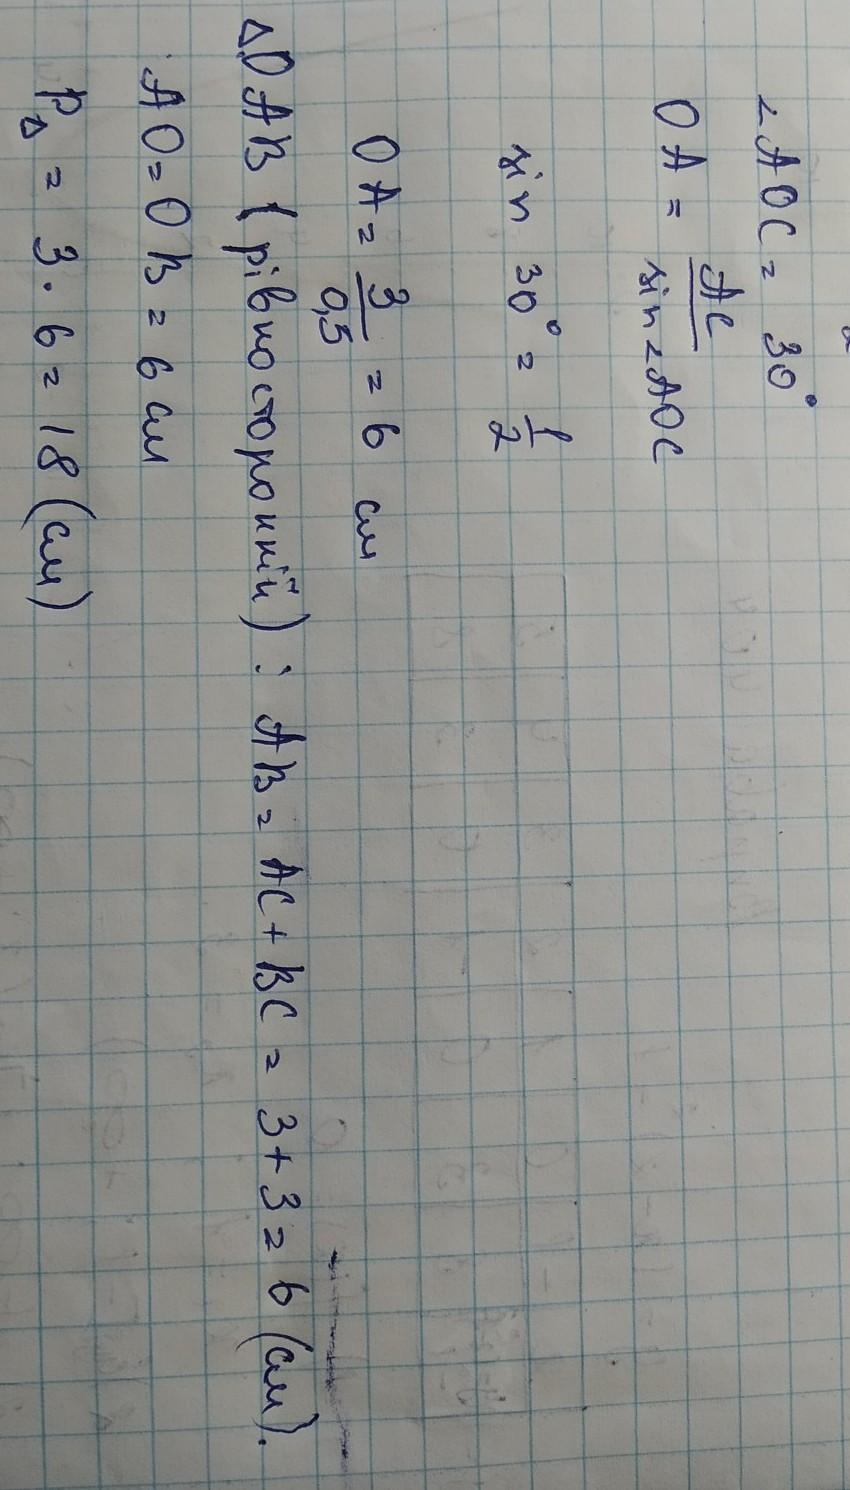 ∠AOC = 30°
OA = AC / sin∠AOC
sin 30° = 1/2
OA = 3/0,5 = 6 см
△OAB (рівносторонній): AB = AC + BC = 3+3 = 6 (см).
AO = OB = 6 см
P△ = 3 · 6 = 18 (см)